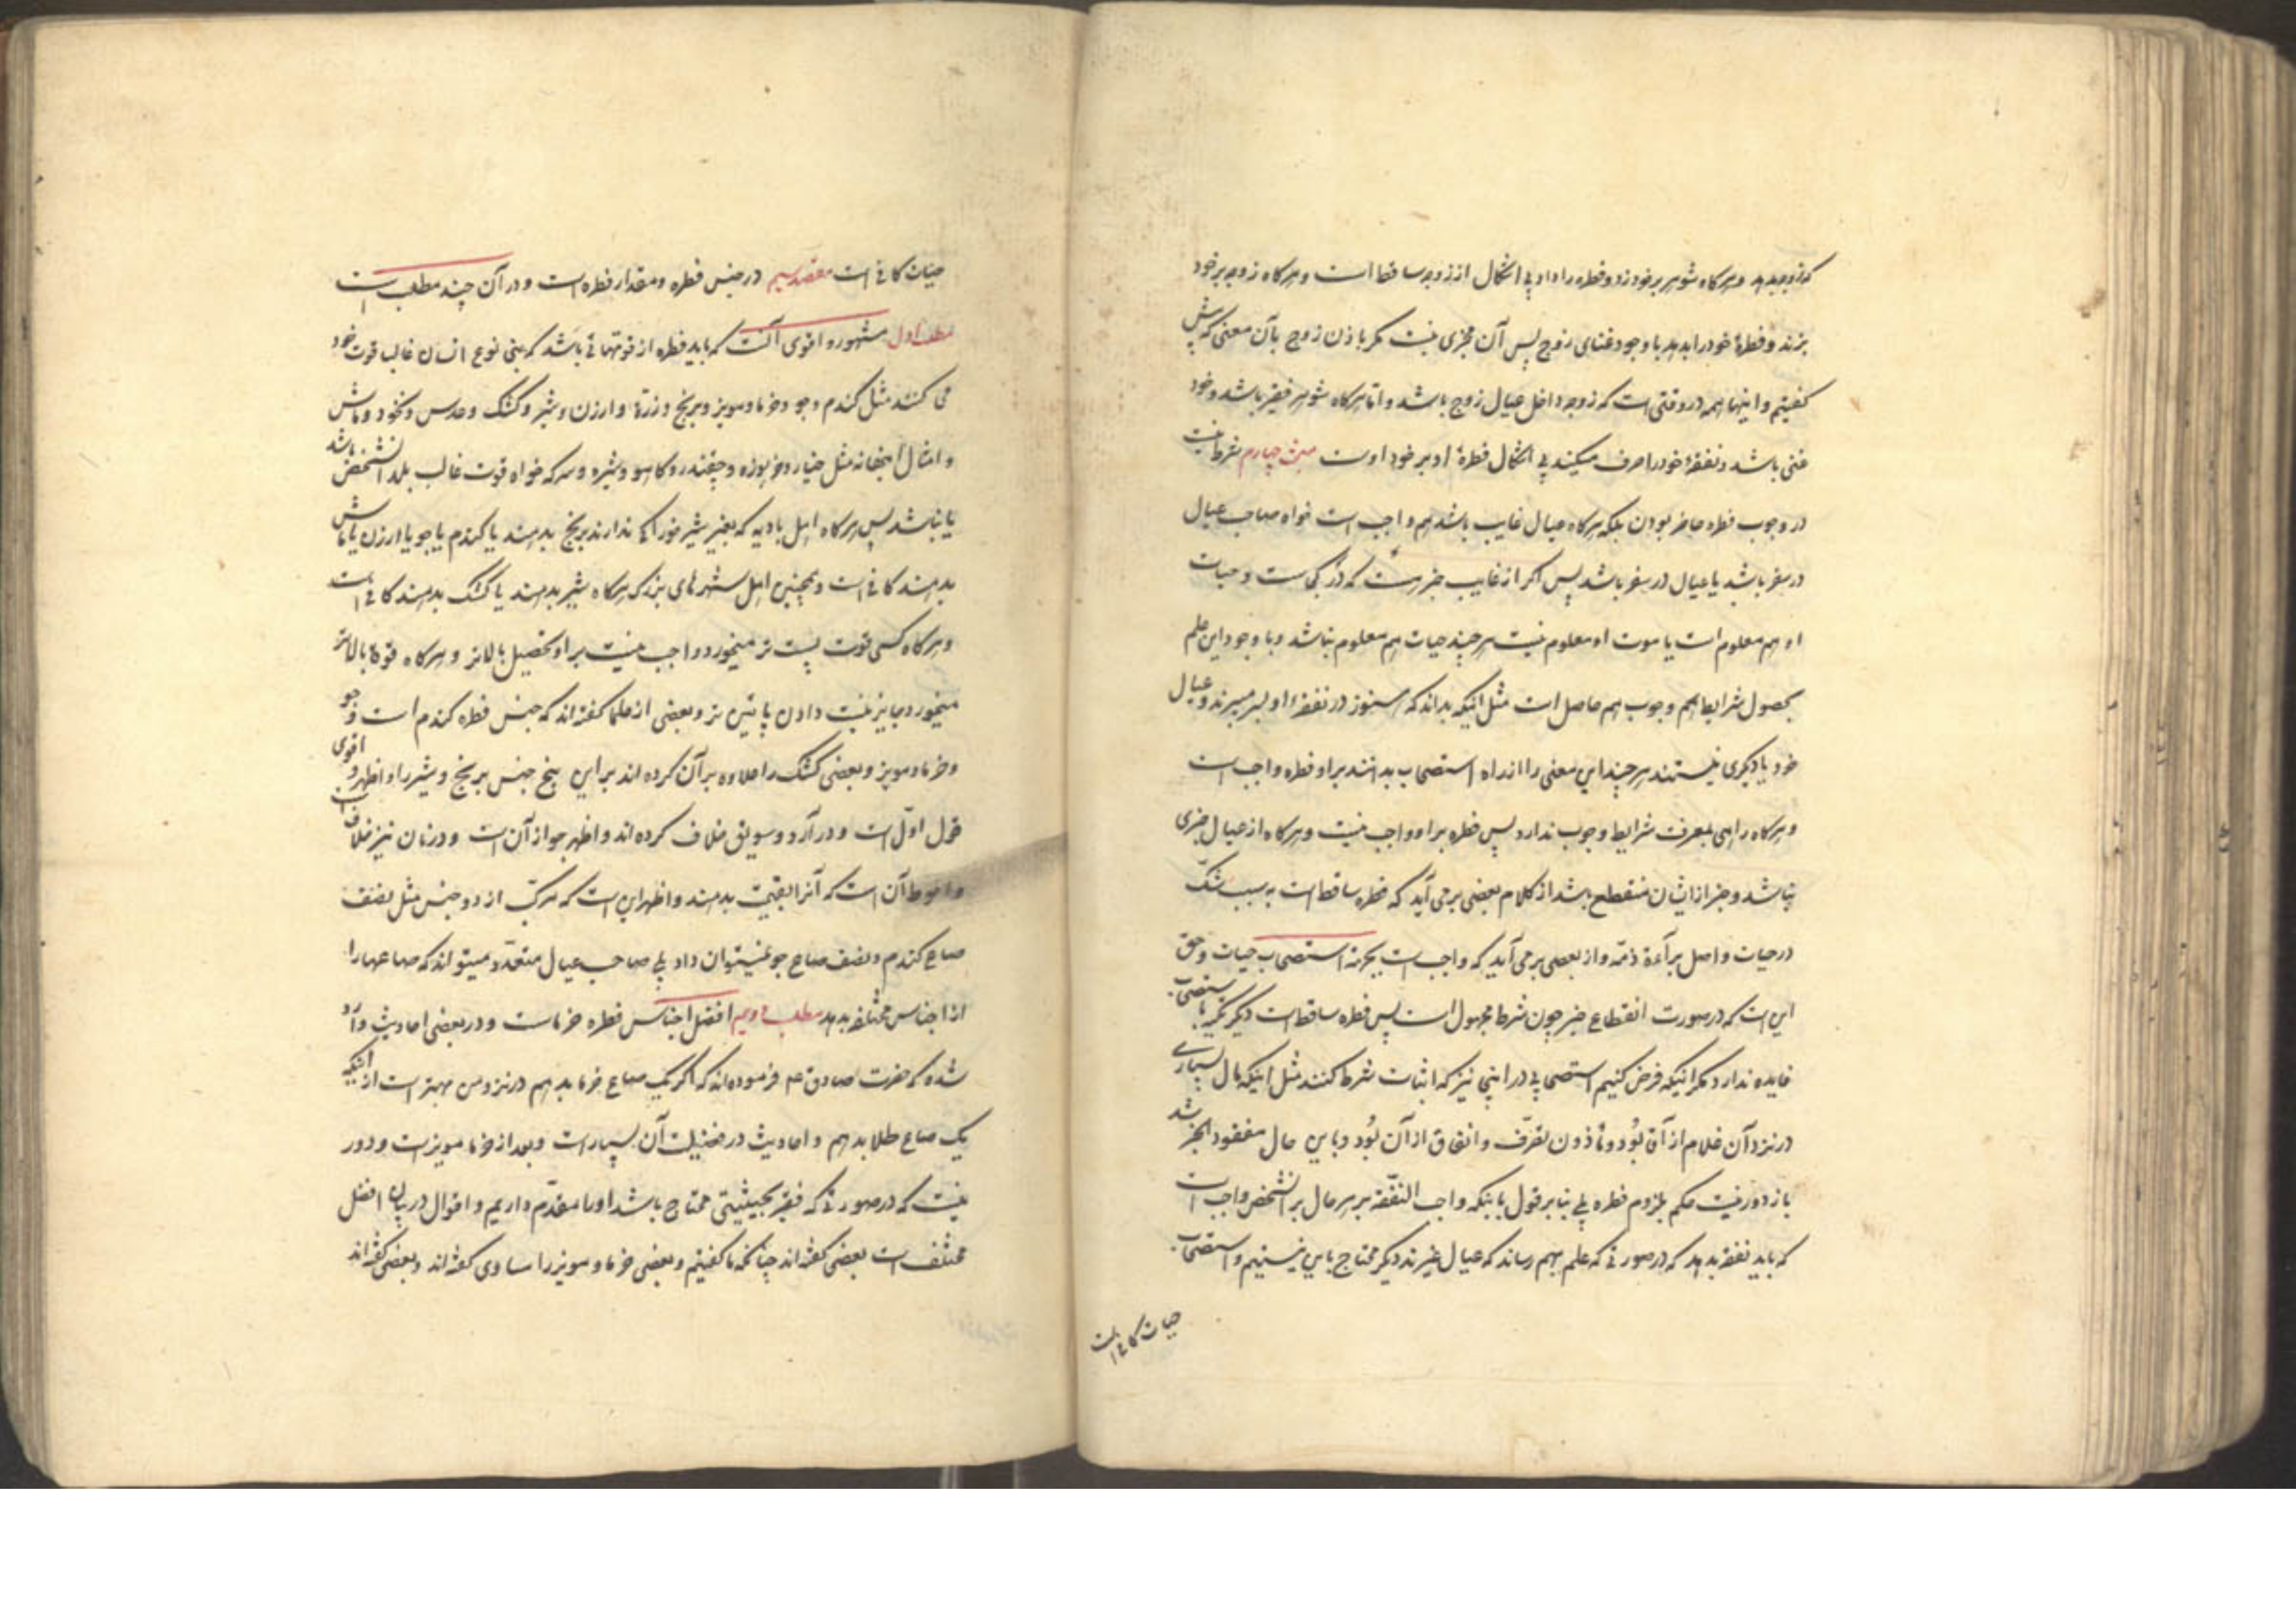 که زوجه بدهد و هرگاه شوهر بر خود زد و فطره را داد بی اشکال از زوجه ساقط است و هرگاه زوجه بر خود
بزند و فطرهٔ خود را بدهد با وجود غنای زوج پس آن مجزی نیست مگر باذن زوج بآن معنی که پیش
گفتیم و اینها همه در وقتی است که زوجه داخل عیال زوج باشد و اما هرگاه شوهر فقیر باشد و خود
غنی باشد و نفقهٔ خود را صرف میکند بی اشکال فطرهٔ او بر خود اوست مبحث چهارم شرط نیست
در وجوب فطره حاضر بودن بلکه هرگاه عیال غایب باشد هم واجب است خواه صاحب عیال
در سفر باشد یا عیال در سفر باشد پس اگر از غایب خبر هست که در کجاست و حیات
او هم معلوم است یا موت او معلوم نیست هر چند حیات هم معلوم نباشد و با وجود این علم
بحصول شرایط هم وجوب هم حاصل است مثل اینکه بداند که هنوز در نفقهٔ او بسر میبرند و عیال
خود یا دیگری نیستند هر چند این معنی را از راه استصحاب بدانند بر او فطره واجب است
و هرگاه راهی بمعرفت شرایط وجوب ندارد پس فطره بر او واجب نیست و هرگاه از عیال خبری
نباشد و خبر از ایشان منقطع باشد از کلام بعضی بر می آید که فطره ساقط است به سبب شک
در حیات و اصل برآءة ذمّه و از بعضی بر می آید که واجب است بجهة استصحاب حیات و حق
این است که در صورت انقطاع خبر چون شرط مجهول است پس فطره ساقط است دیگر استصحاب
فایده ندارد مگر اینکه فرض کنیم استصحابی در اینجا نیز که اثبات شرط کند مثل اینکه مال بسیاری
در نزد آن غلام از آقا بود و مأذون تصرّف و انفاق از آن بود و با این حال مفقود الخبر شد
باز دور نیست حکم بلزوم فطره بلی بنا بر قول باینکه واجب النفقه بر هر حال بر آنشخص واجب است
که باید نفقه بدهد که در صورتی که علم بهم رساند که عیال غیرند دیگر محتاج باین نیستیم و استصحاب
حیات کافی است
حیات کافی است مقصد سیم در جنس فطره و مقدار فطره است و در آن چند مطلب است
مطلب اول مشهور و اقوی آنست که باید فطره از قوتهائی باشد که بنی نوع انسان غالب قوت خود
می کنند مثل گندم و جو و خرما و مویز و برنج و ذرّة و ارزن و شیر و کشک و عدس و نخود و ماش
و امثال اینها نه مثل خیار و خربوزه و چغندر و کاهو و شیره و سرکه خواه قوت غالب بلد آنشخص باشد
یا نباشد پس هرگاه اهل بادیه که بغیر شیر خوراکی ندارند برنج بدهند یا گندم یا جو یا ارزن یا ماش
بدهند کافی است و همچنین اهل شهرهای بزرگ هرگاه شیر بدهند یا کشک بدهند کافی است
و هرگاه کسی قوت پست تر میخورد واجب نیست بر او تحصیل بالاتر و هرگاه قوة بالاتر
میخورد جایز نیست دادن پائین تر و بعضی از علما گفته اند که جنس فطره گندم است و جو
و خرما و مویز و بعضی کشک را علاوه بر آن کرده اند بر این پنج جنس برنج و شیر را و اظهر و اقوی
قول اوّل است و در آرد و سویق خلاف کرده اند و اظهر جواز آن است و در نان نیز خلاف است
و احوط آن است که آنرا بقیمت بدهند و اظهر این است که مرکّب از دو جنس مثل نصف
صاع گندم و نصف صاع جو نمیتوان داد بلی صاحب عیال متعدّد میتواند که صاعها را
از اجناس مختلفه بدهد مطلب دویم افضل اجناس فطره خرماست و در بعضی احادیث وارد
شده که حضرت صادق عم فرموده اند که اگر یک صاع خرما بدهم در نزد من بهتر است از اینکه
یک صاع طلا بدهم و احادیث در فضیلت آن بسیار است و بعد از خرما مویز است و دور
نیست که در صورتی که فقیر بحیثیتی محتاج باشد او را مقدّم داریم و اقوال در بیان افضل
مختلف است بعضی گفته اند چنانکه ما گفتیم و بعضی خرما و مویز را مساوی گفته اند و بعضی گفته اند